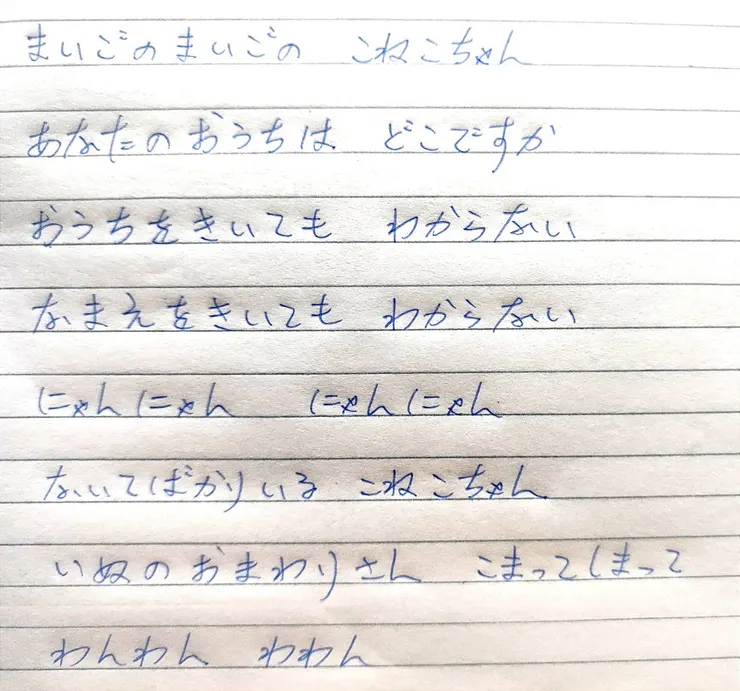 まいごのまいごの こねこちゃん
あなたのおうちは どこですか
おうちをきいても わからない
なまえをきいても わからない
にゃんにゃん にゃんにゃん
ないてばかりいる こねこちゃん
いぬのおまわりさん こまってしまって
わんわん わわん